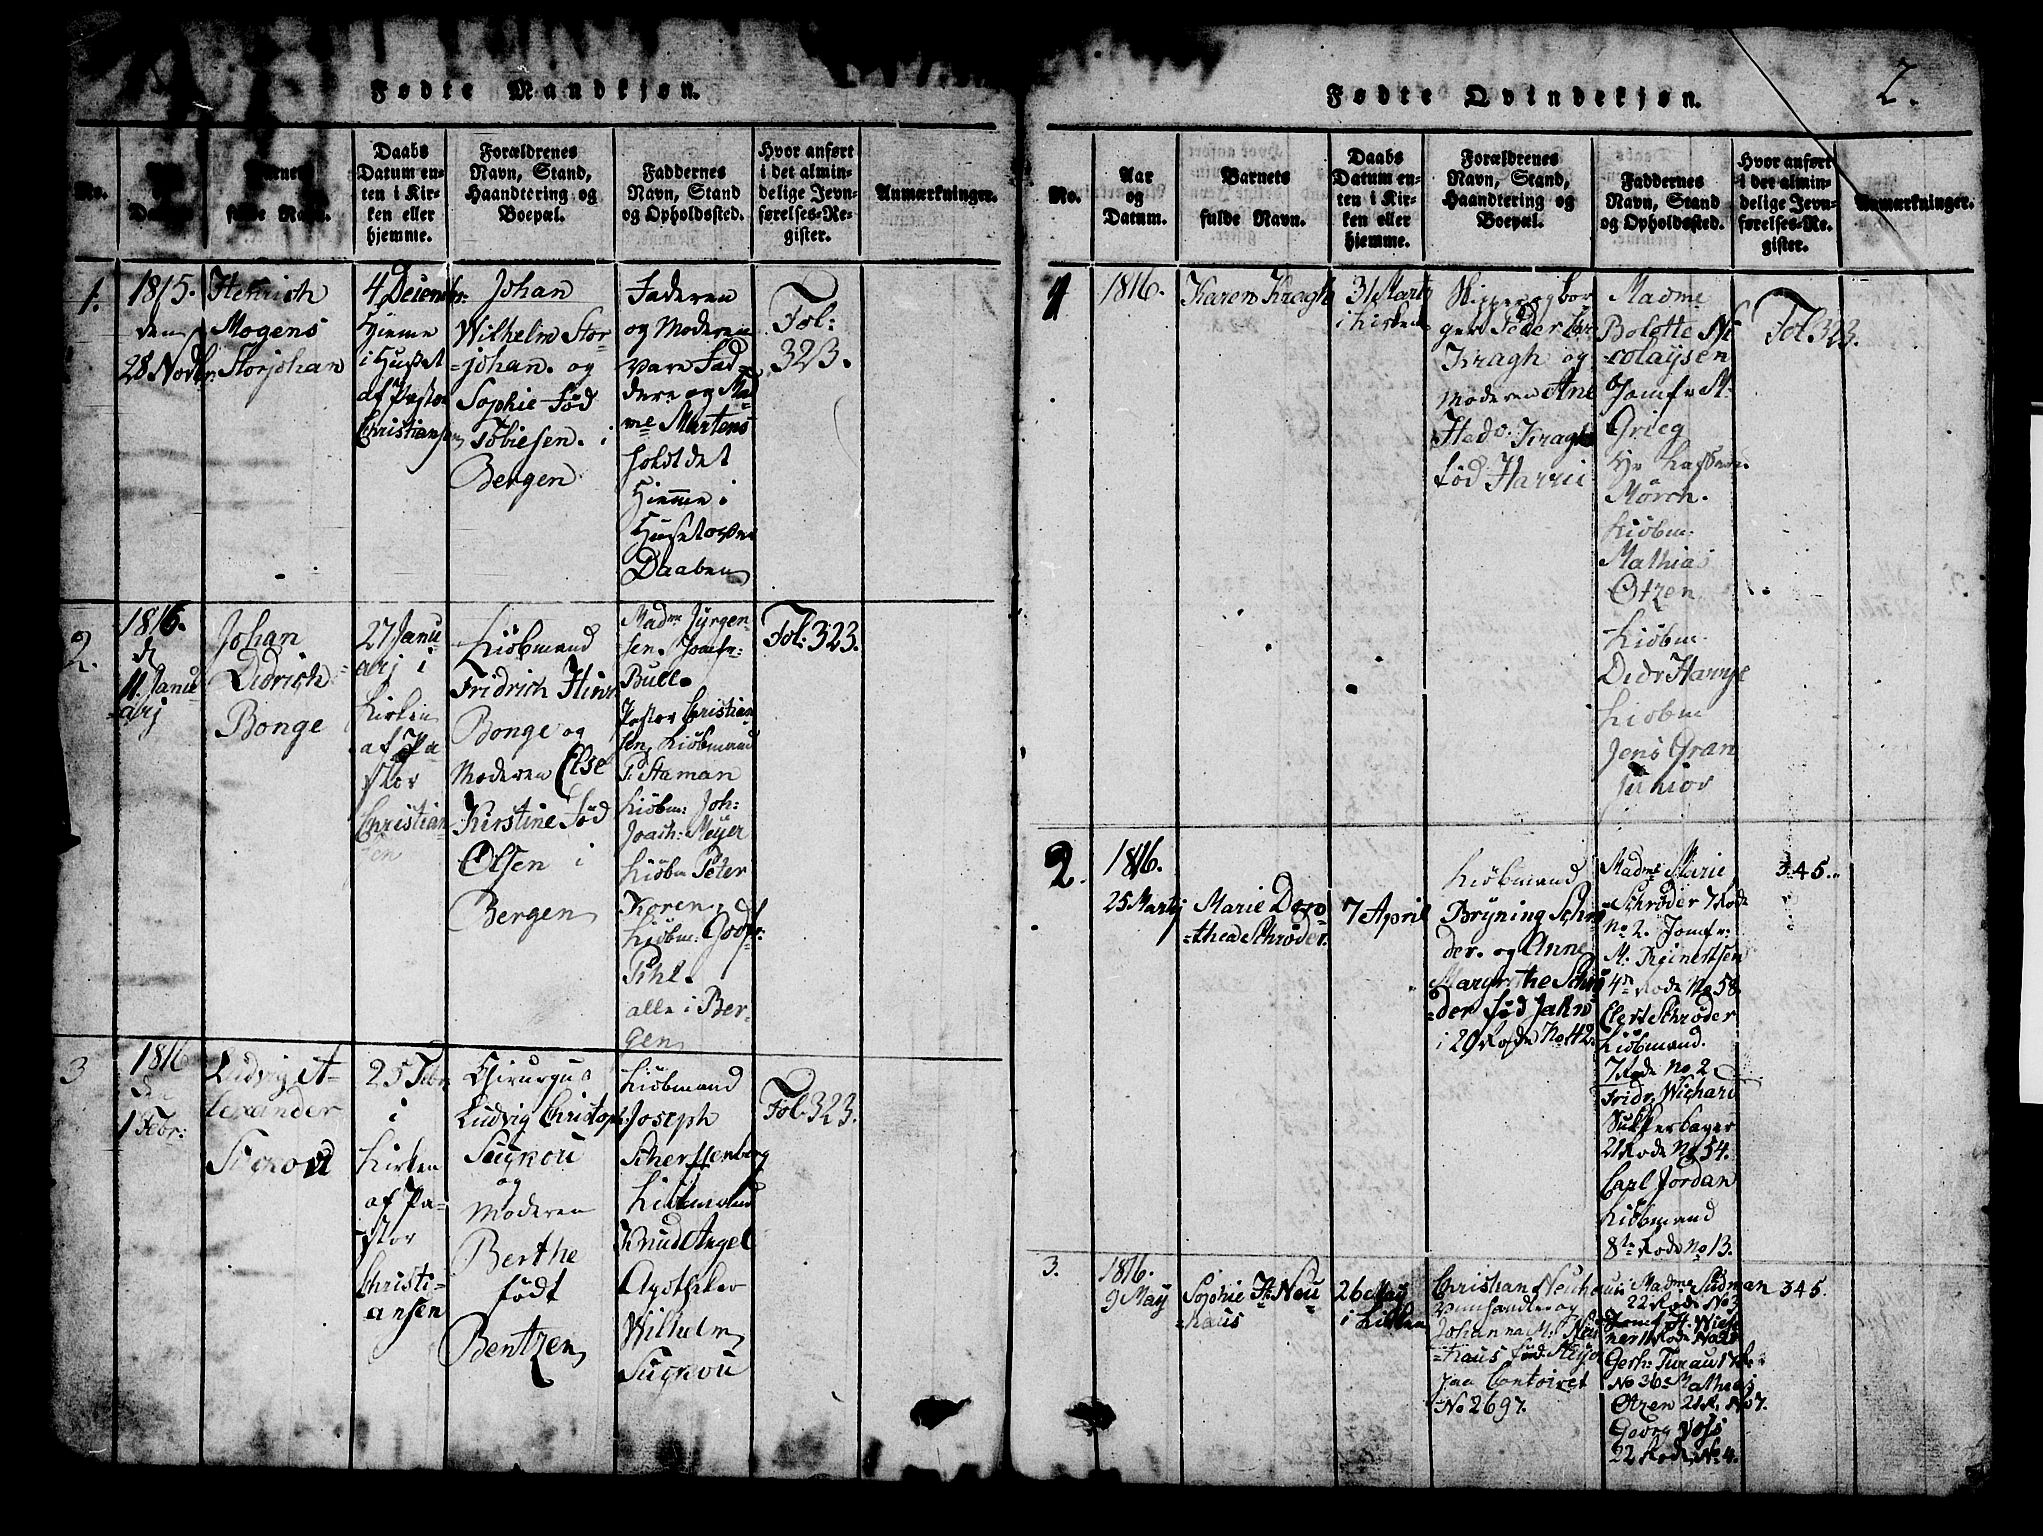 Fødte Mandkjøn.
No.
Datum.
Barnets
fulde Navn.
Daabs
Datum en-
ten i Kir-
ken eller
hjemme.
Forældrenes
Navn, Stand,
Haandtering og
Boepæl.
Faddernes
Navn, Stand
og Opholdssted.
Hvor anført
i det almin-
delige Jevn-
førelses-Re-
gister.
Anmærkninger.
1.
1815.
den
28 Novbr.
Henrich
Mogens
Storjohan
4 Decembr:
Hieme
i Huset
af Pastor
Christiansen
Johan
Wilhelm Stor-
=johan. og
Sophie Fød
Tobiesen. i
Bergen
Faderen
og Moderen
vare Fad=
dere og Ma=
me Martens
holdt det
Hiemme i
Huset over
Daaben
Fol:
323.
2.
1816.
d
11 Janu
=arj
Johan
Didrich
Bonge
27 Janu
arj i
Kirken
af Pa
stor
Christian
sen
Kiøbmand
Fridrich Hinr
Bonge og
Moderen Else
Kirstine Fød
Olsen i
Bergen
Madme Jürgen-
sen. Jomfr.
Bull.
Pastor Christian
sen, Kiøbmand
P: Staman
Kiøbm: Joh:
Joach: Meyer
Kiøbm Peter
Koren,
Kiøbm: Godtf:
Pihl.
alle i Ber-
gen
Fol: 323.
3
1816
den
1 Febr:
Ludvig A-
lexander
25 Febr
i
Kirken
af Pa-
stor
Christi-
ansen
Chirurgus
Ludvig Christoph:
Suckou
og
Moderen
Berthe
født
Bentzen
Kiøbmand
Joseph
Scherffenberg
Kiøbmand
Knud Angel
Apotheker
Wilhelm
Suckou
Fol 323.
Fødte Qvindekjøn.
2.
No.
Aar
og
Datum.
Barnets
fulde Navn.
Daabs
Datum en-
ten i Kir-
ken eller
hjemme.
Forældrenes
Navn, Stand,
Haandtering og
Boepæl.
Faddernes
Navn, Stand
og Opholdssted.
Hvor anført
i det almin-
delige Jevn-
førelses-Re-
gister.
Anmærkninger.
1
1816.
Karen Kragh
31 Martj
i Kirken
Skipper og bor
ger Peder
Kragh og
Moderen Ane
Kragh
fød Harrie
Madme
Bolotte Ni
=colaysen
Jomfr M.
Grieg
Mörch.
Kiøbm:
Mathias
Otzen
Kiøbm.
Didr Harrye
Kiøbm
Jens Gran
junior
Fol 323.
2.
1816.
25 Martj
Marie Doro
=thea Schrøder.
7 April
Kiøbmand
Bryning Schrø
der. og Anne
Margrethe Schrø
=der Fød Jahn
i 20 Rode No 42.
Madme Marie
Schrøder 7 Rode
No 2. Jomfr:
M: Reinertsen
4de Rode No 58.
Elert Schrøder
Kiøbmand.
7 Rode No 2.
Fridr. Wichard
Sukkerbager
21 Rode No 54.
Carl Jordan
Kiøbmand
8te Rode No 13.
345.
3.
1816.
9 May
Sophie H: Neu
=haus
26 May
i Kirken
Christian Neuhaus
Viinhandler og
Johanna M: Neu
=haus fød: Meyer
paa Contoiret
No 2697.
Madme Südman
22 Rode No 3
Jomf H. Wiese
ner 11 Rode No 25
Gerh: Turau 17 R.
No 36. Mathias
Otzen 21 R. No 7.
Georg Vos
22 Rode No 4.
345.